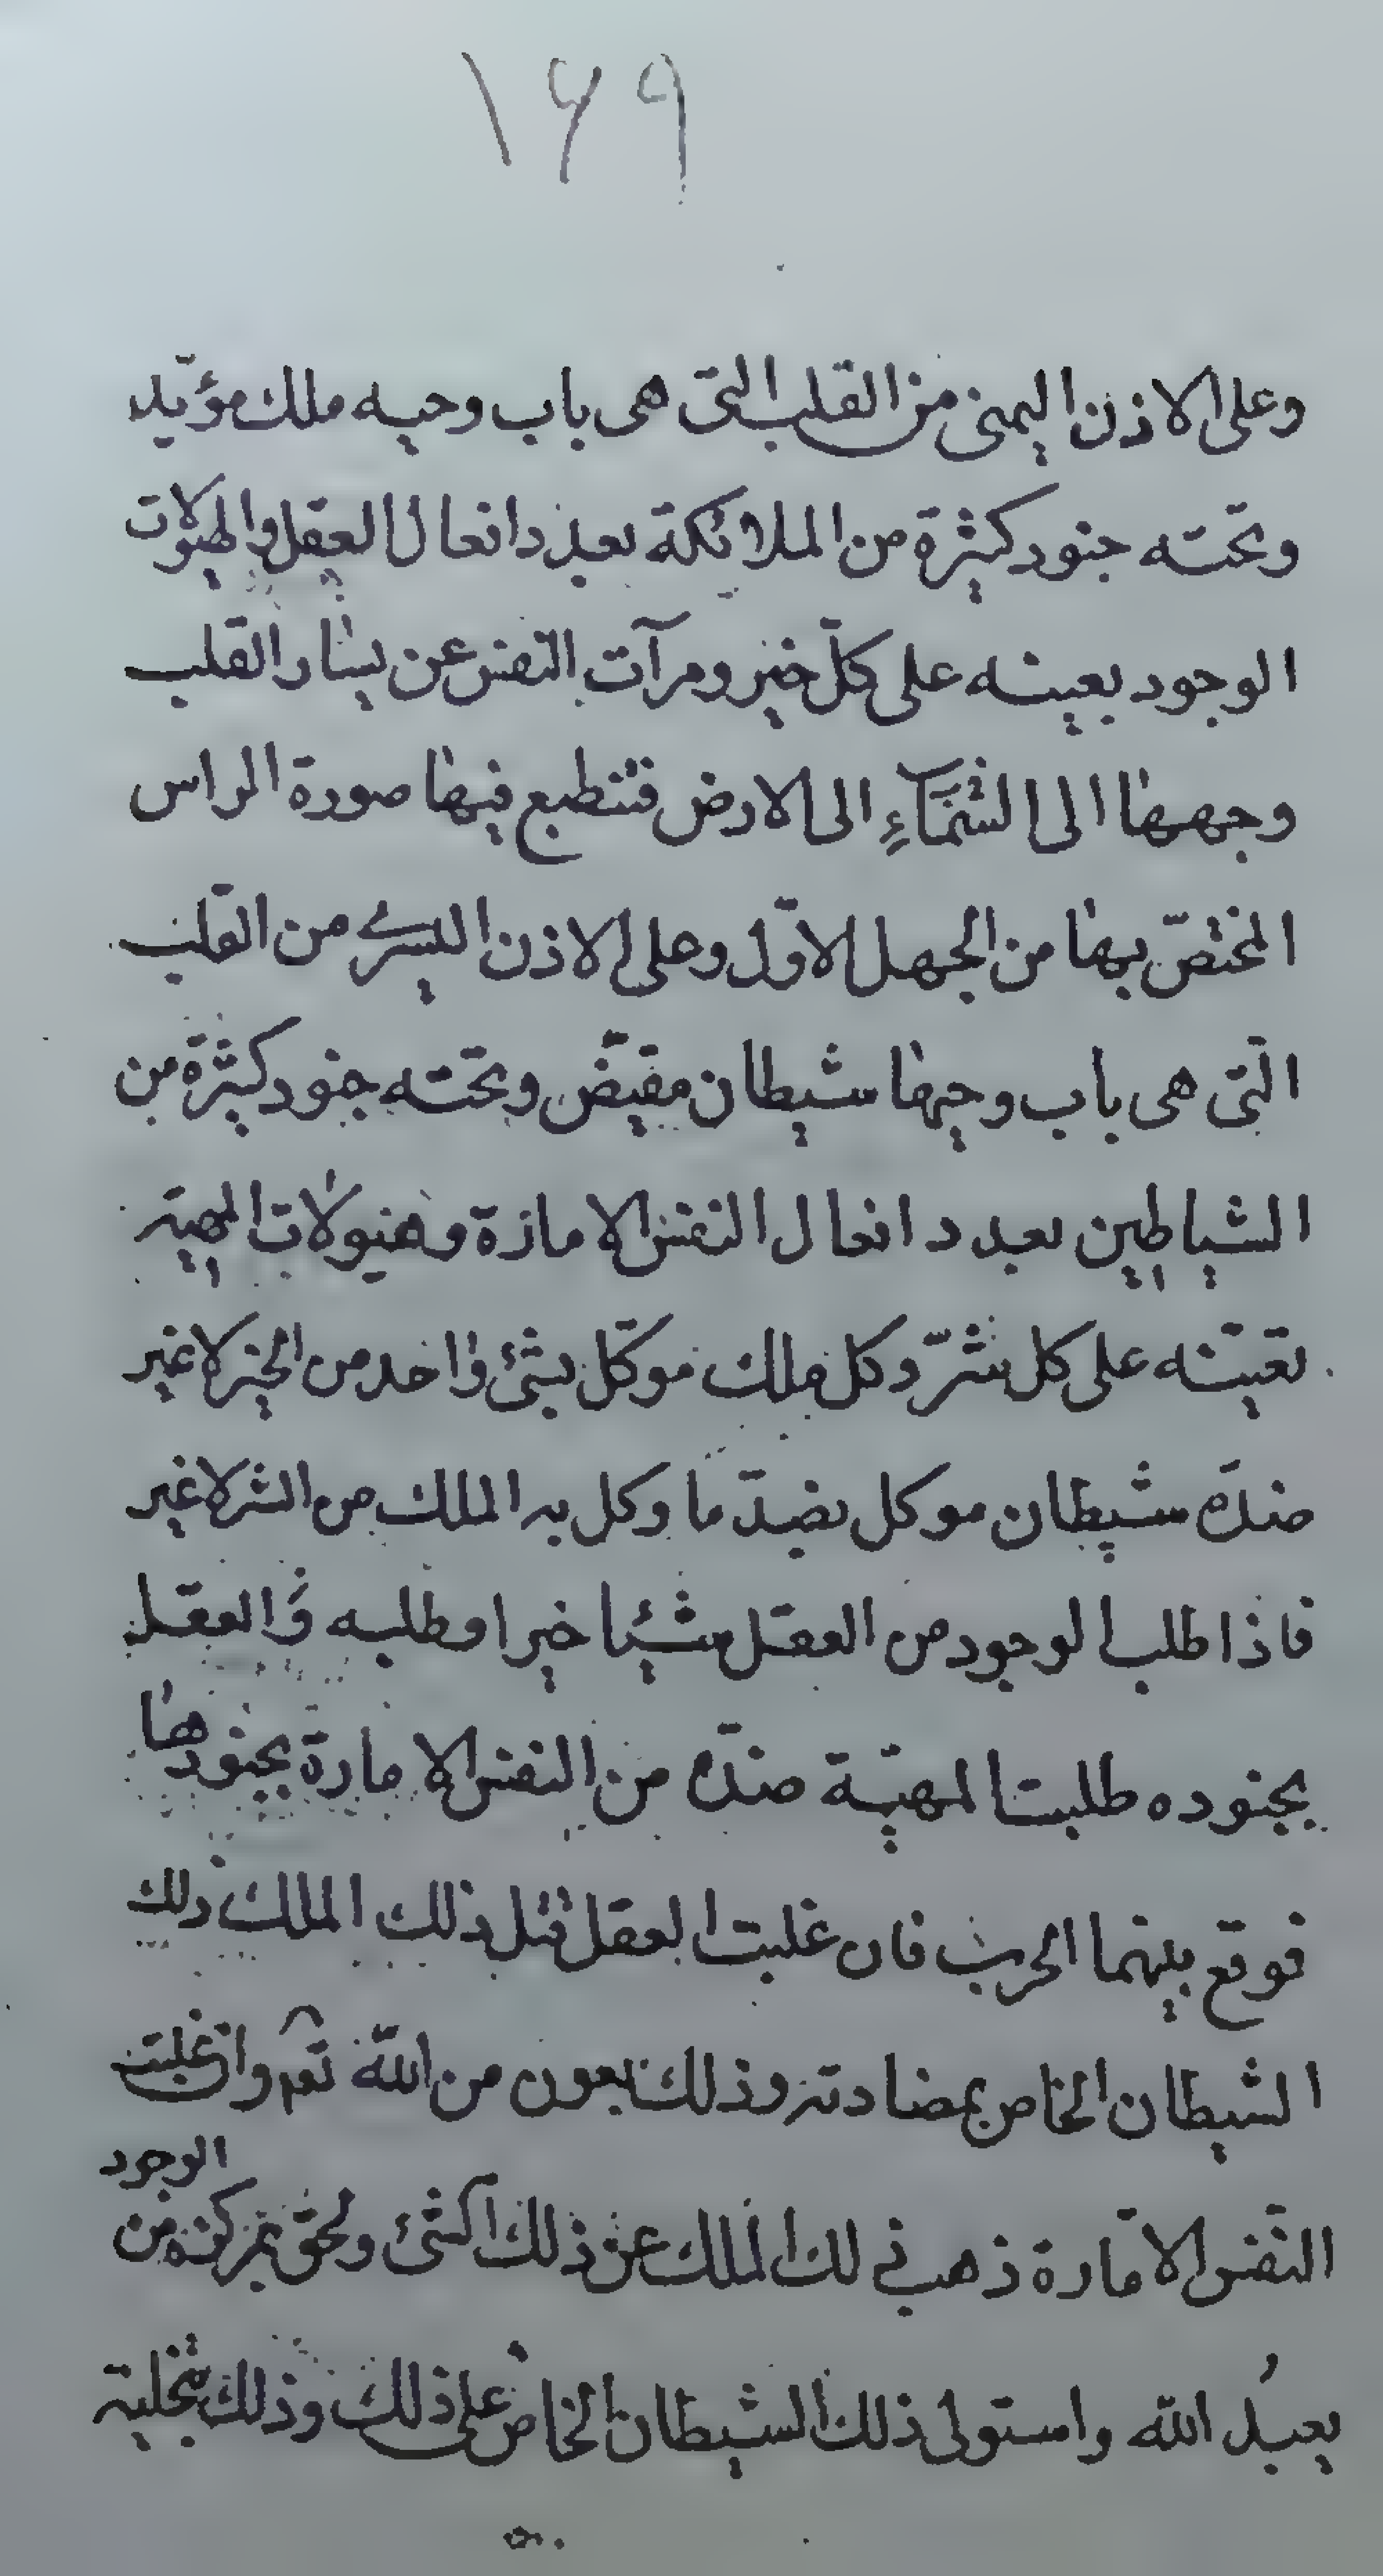 ١٦٩
وعلى الاذن اليمنى من القلب التى هى باب وحيه ملك مؤيّد
وتحته جنود كثيرة من الملائكة بعدد افعال العقل والهيولات
الوجود يعينه على كلّ خير ومرآت النفس عن يسار القلب
وجهها الى السّمآءِ الى الارض فتنطبع فيها صورة الراس
المختصّ بها من الجهل الاوّل وعلى الاذن اليسرى من القلب
التى هى باب وحيها شيطان مقيّض وتحته جنود كثيرة من
الشياطين بعدد افعال النفس الامارة وهيولات المهية
تعينه على كل شرّ وكل ملك موكّل بشئ واحد من الخير لا غير
ضدّه شيطان موكل بضدّ ما وكل به الملك من الشر لا غير
فاذا طلب الوجود من العقل شيئا خيرا وطلبه العقل
بجنوده طلبت المهيّة ضدّه من النفس الامارة بجنودها
فوقع بينهما الحرب فان غلبت العقل قتل ذلك الملك ذلك
الشيطان الخاص بمضادته وذلك بعون من اللّه تعم وان غلبت
الوجود
النفس الامّارة ذهب ذلك الملك عن ذلك الشئ ولحق بمركزه من
يعبُد اللّه واستولى ذلك الشيطان الخاص على ذلك وذلك بتخلية